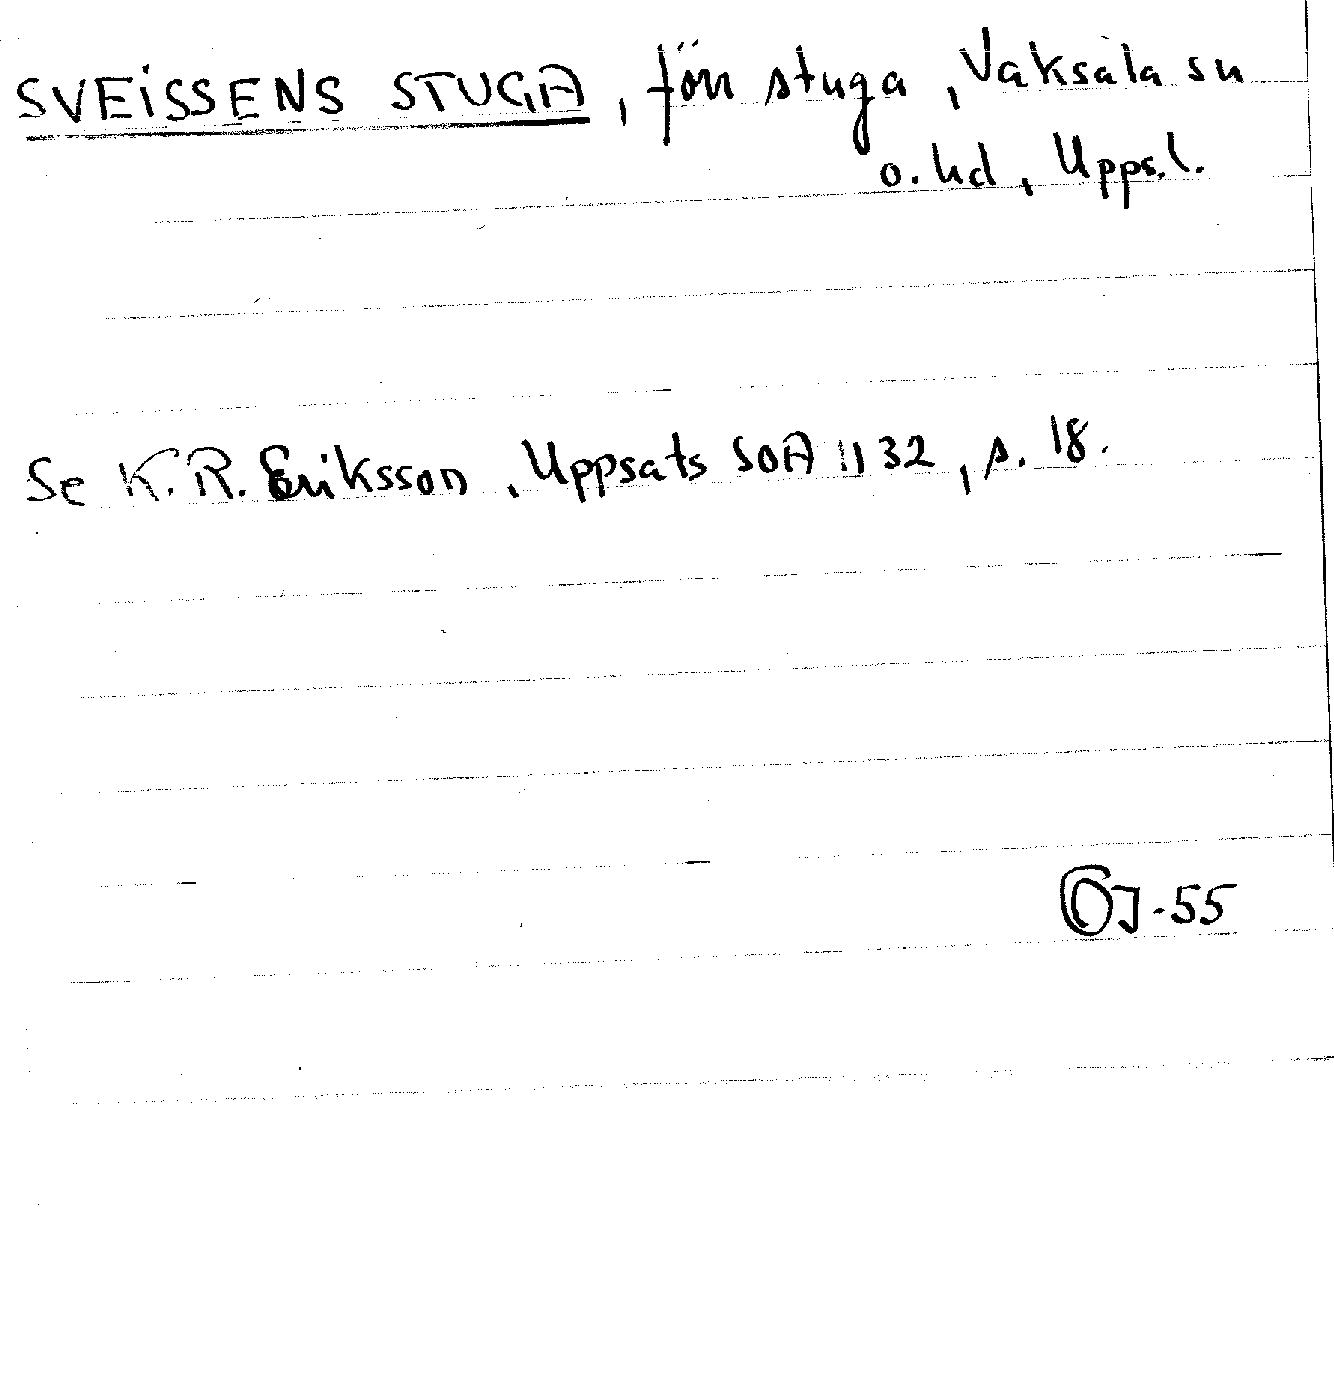 SVEISSENS STUGA, förr stuga, Vaksala sn
o. hd, Upps.l.
Se K.R. Eriksson, Uppsats SOA 1132, s. 18.
ÖJ-55